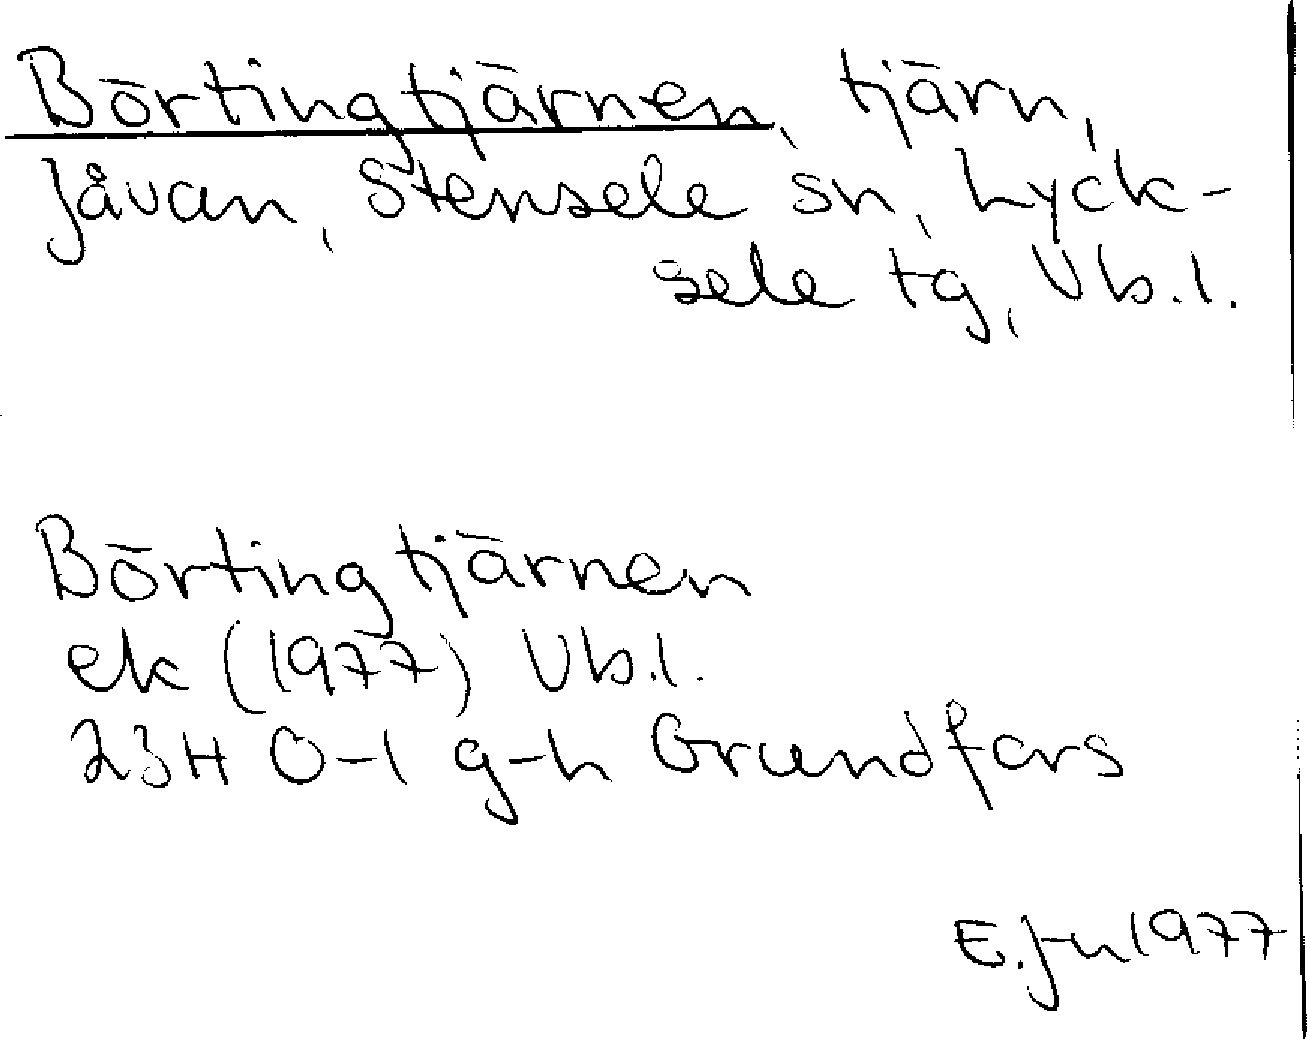 Börtingtjärnen, tjärn,
Jåvan, Stensele sn, Lyck-
sele tg, Vb.l.
Börtingtjärnen
ek (1977) Vb.l.
23H 0-1 g-h Grundfors
E.Ju 1977